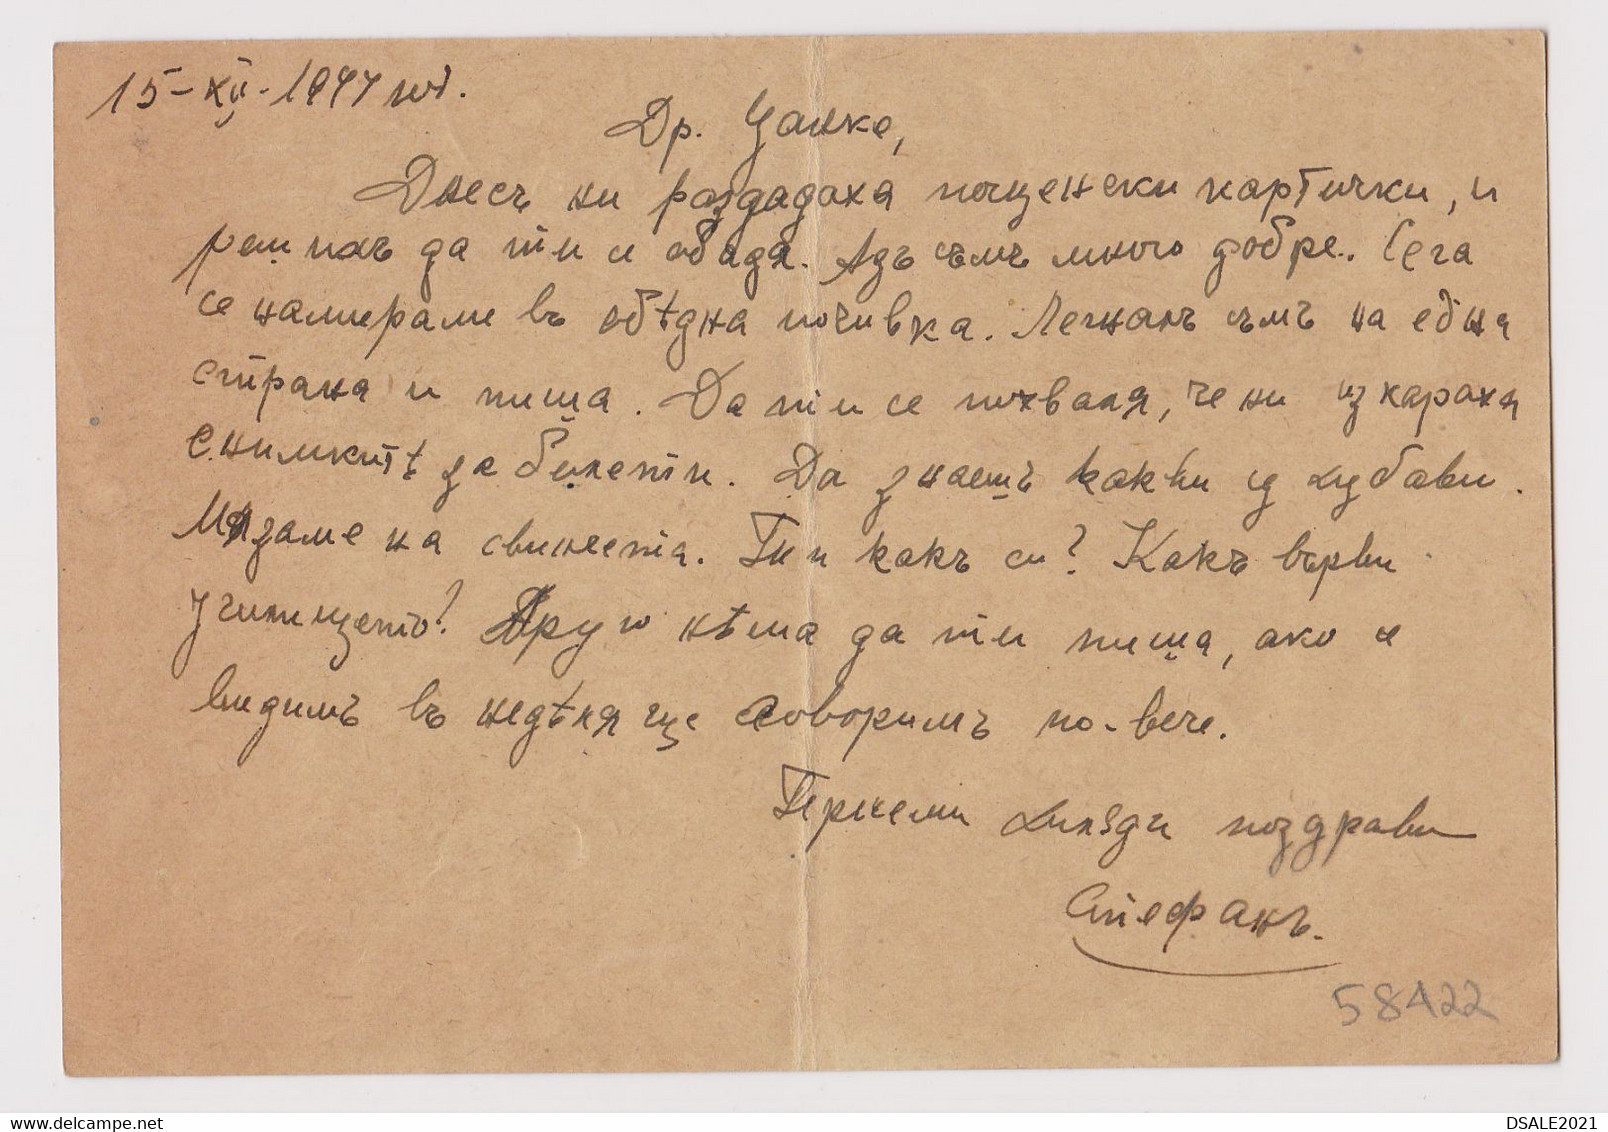 15-XII-1947 год.
Др. Цанке,
Днесъ ни раздадоха пощенски картички, и
решихъ да ти се обадя. Азъ съмъ много добре. Сега
се намираме въ обѣдна почивка. Легналъ съмъ на една
страна и пиша. Да ти се похваля, че ни изкараха
снимкитѣ за билети. Да знаешъ какви сѫ хубави.
Мязаме на свинета. Ти какъ си? Какъ върви
училището? Друго нѣма да ти пиша, ако се
видимъ въ недѣля ще говоримъ по-вече.
поздрави
Стефанъ.
58422
DSALE2021